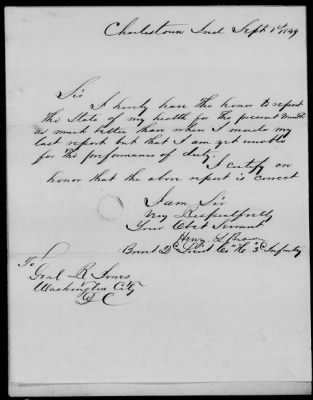 Charlestown Ind Sept 1st 1849
Sir
I hereby have the honor to report
the State of my health for the present month
as much better than when I made my
last report but that I am yet unable
for the performance of duty.
I certify on
honor that the above report is correct
I am Sir
Very Respectfully
Your Obet Servant
Henry
Brevt 2d Lieut Co H 3d Infantry
To
Genl R Jones
Washington City
D C